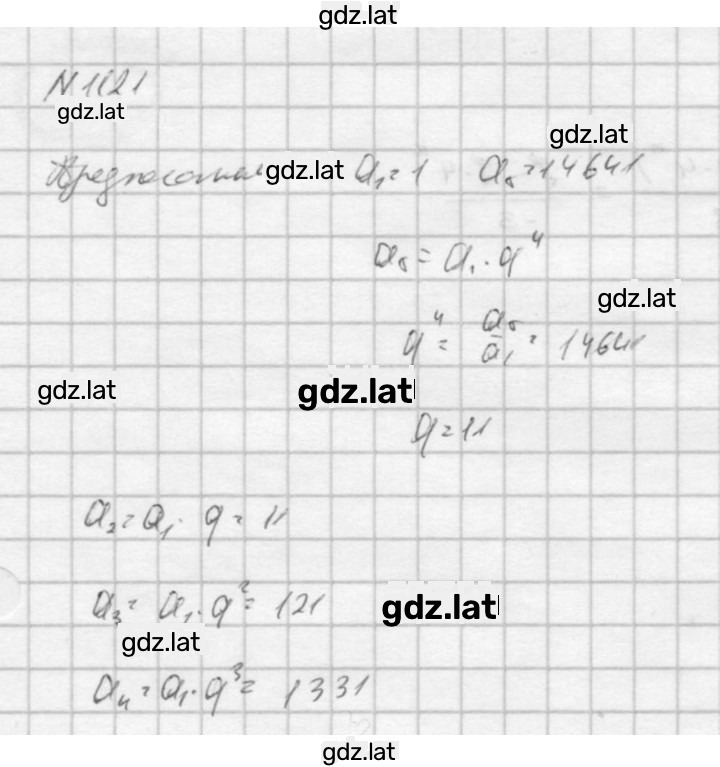 gdz.lat
N 1121
gdz.lat
gdz.lat
Предположим gdz.lat a₁ = 1 a₅ = 14641
a₅ = a₁ · q⁴
gdz.lat
q⁴ = a₅/a₁ = 14641
gdz.lat gdz.lat
q = 11
a₂ = a₁ · q = 11
a₃ = a₁ · q² = 121
gdz.lat
gdz.lat
a₄ = a₁ · q³ = 1331
gdz.lat